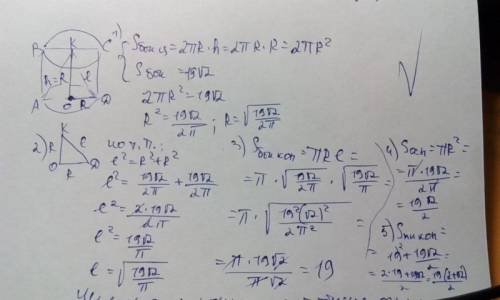 1)
B K C
h=R l
A O D
Sбок ц = 2πR·h = 2πR·R = 2πR²
Sбок = 19√2
2πR² = 19√2
R² = 19√2/2π ; R = √(19√2/2π)
2) K
R l
O R D
по т. П.:
l² = R² + R²
l² = 19√2/2π + 19√2/2π
l² = 2·19√2/2π
l² = 19√2/π
l = √(19√2/π)
3) Sбок кон = πRl =
= π · √(19√2/2π) · √(19√2/π) =
= π · √(19²(√2)²/2π²) =
= π·19√2/π√2 = 19
4) Sосн = πR² =
= π·19√2/2π =
= 19√2/2
5) Sп кон =
= 19 + 19√2/2 =
= 2·19+19√2/2 = 19(2+√2)/2